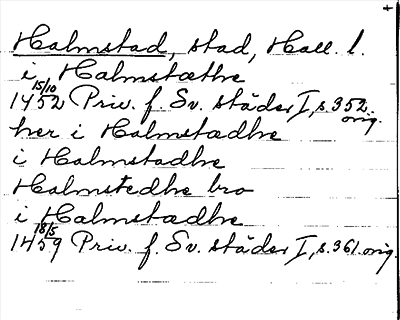 Halmstad, stad, Hall. l.
i Halmstæthe
1452 15/10 Priv. f. Sv. städer I, s. 352. orig.
her i Halmstædhe
i Halmstadhe
Halmstedhe bro
i Halmstædhe
1459 18/5 Priv. f. Sv. städer I, s. 361. orig.